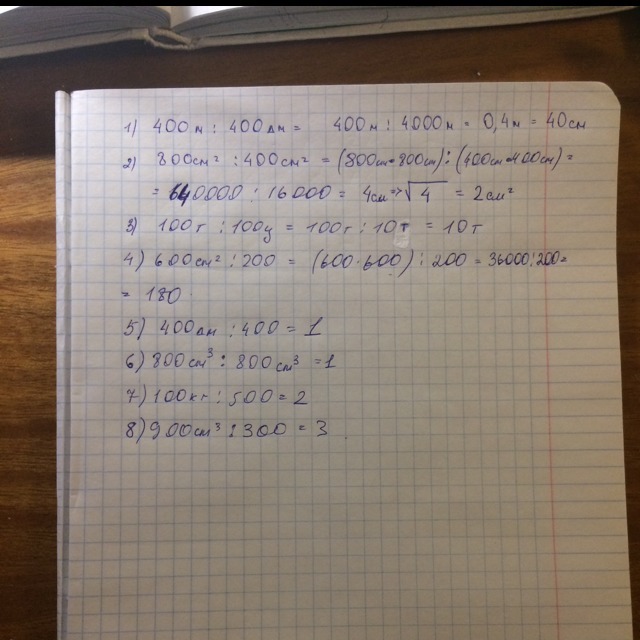 1) 400м : 400дм = 400м : 4000м = 0,4м = 40см
2) 800см² : 400см² = (800см·800см) : (400см·400см) =
= 640000 : 16000 = 4см => √4 = 2см²
3) 100т : 100ц = 100т : 10т = 10т
4) 600см² : 200 = (600·600) : 200 = 36000:200=
= 180
5) 400дм : 400 = 1
6) 800см³ : 800см³ = 1
7) 100кг : 500 = 2
8) 900см³ : 300 = 3